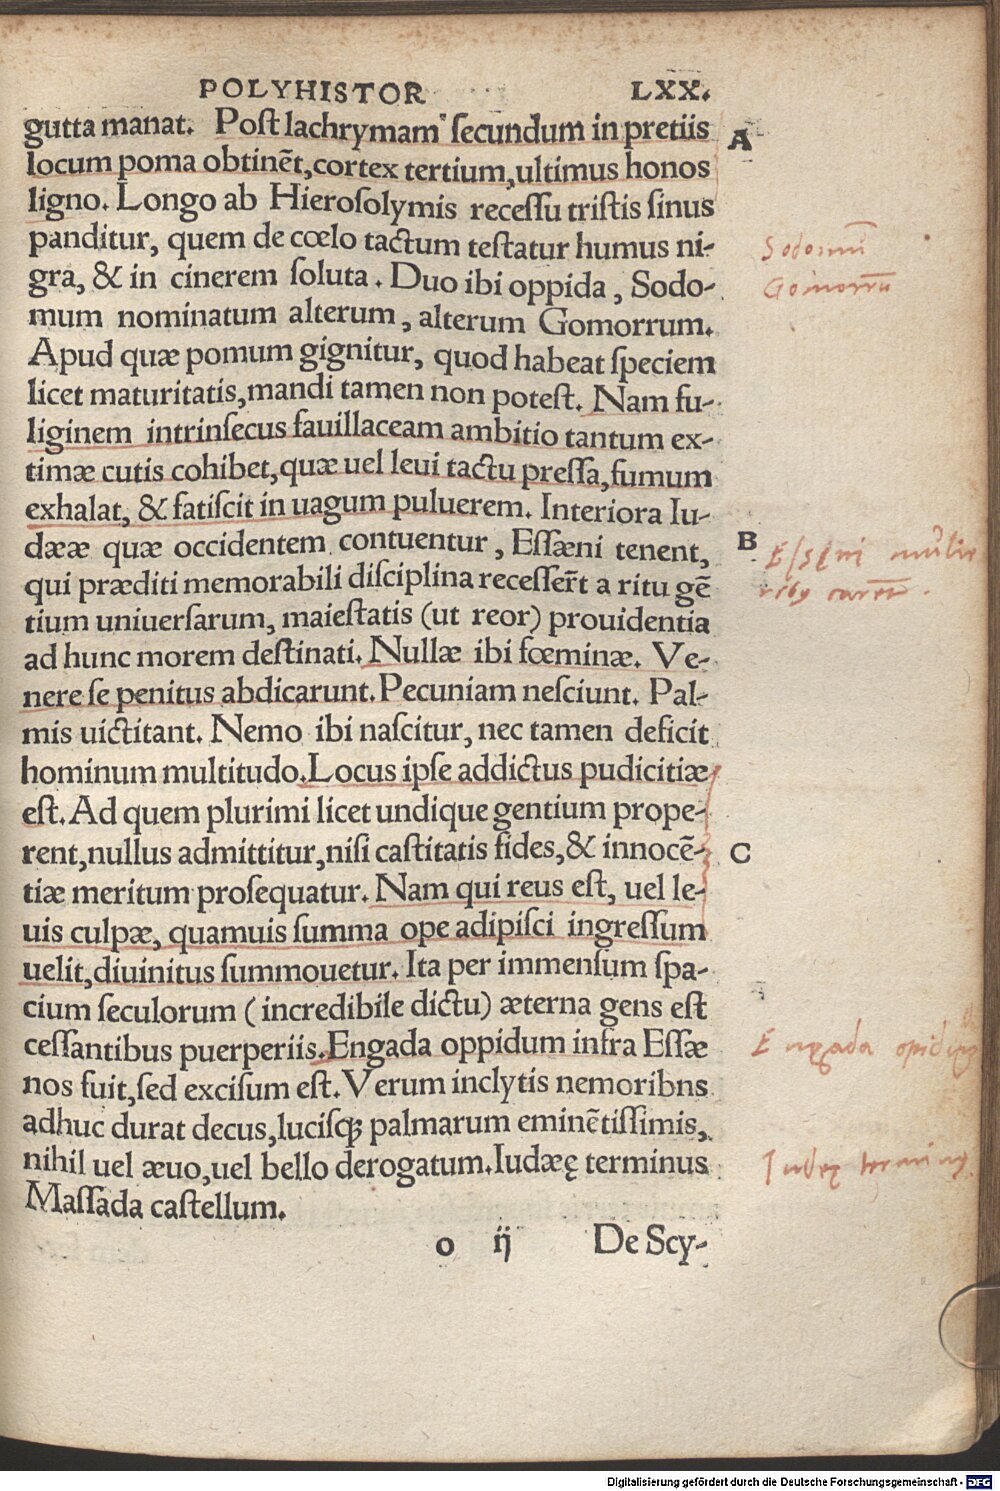 POLYHISTOR LXX.
gutta manat. Poſt lachrymam ſecundum in pretiis
locum poma obtinēt,cortex tertium,ultimus honos
ligno. Longo ab Hieroſolymis receſſu triſtis ſinus
panditur, quem de cœlo tactum teſtatur humus ni-
gra, & in cinerem ſoluta. Duo ibi oppida, Sodo-
mum nominatum alterum, alterum Gomorrum.
Apud quæ pomum gignitur, quod habeat ſpeciem
licet maturitatis,mandi tamen non poteſt. Nam fu-
liginem intrinſecus fauillaceam ambitio tantum ex-
timæ cutis cohibet,quæ uel leui tactu preſſa,fumum
exhalat, & fatiſcit in uagum puluerem. Interiora Iu-
dææ quæ occidentem contuentur, Eſſæni tenent,
qui præditi memorabili diſciplina receſſer̄t a ritu gē
tium uniuerſarum, maieſtatis (ut reor) prouidentia
ad hunc morem deſtinati. Nullæ ibi fœminæ. Ve-
nere ſe penitus abdicarunt. Pecuniam neſciunt. Pal-
mis uictitant. Nemo ibi naſcitur, nec tamen deficit
hominum multitudo. Locus ipſe addictus pudicitiæ
eſt. Ad quem plurimi licet undique gentium prope-
rent,nullus admittitur,niſi caſtitatis fides,& innocē-
tiæ meritum proſequatur. Nam qui reus eſt, uel le-
uis culpæ, quamuis ſumma ope adipiſci ingreſſum
uelit,diuinitus ſummouetur. Ita per immenſum ſpa-
cium ſeculorum (incredibile dictu) æterna gens eſt
ceſſantibus puerperiis. Engada oppidum infra Eſſæ
nos fuit,ſed exciſum eſt. Verum inclytis nemoribns
adhuc durat decus,luciſqꝫ palmarum eminētiſſimis,
nihil uel æuo,uel bello derogatum. Iudæę terminus
Maſſada caſtellum.
o ij De Scy-
A
Sodomū
Gomorrū
B
Eſsęni mulie
ribꝰ carēt.
C
Engada opidum
Iudęę terminꝰ
Digitalisierung gefördert durch die Deutsche Forschungsgemeinschaft - DFG